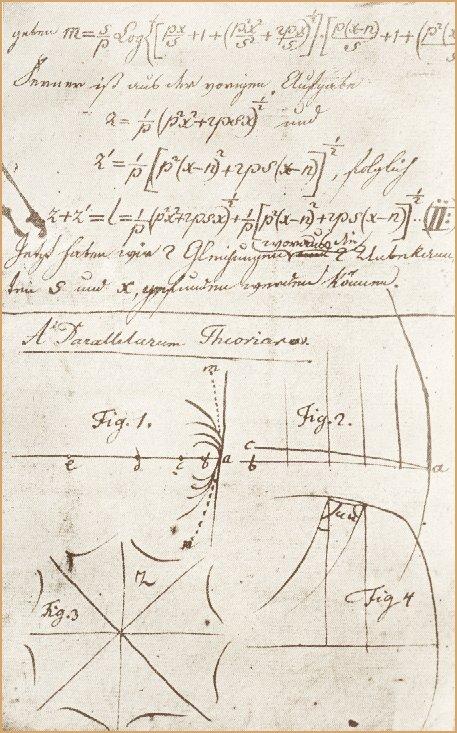 geben m = s/p Log { [ px/s + 1 + (p²x²/s² + 2px/s)^1/2 ] · [ p(x-n)/s + 1 + (p²(x
Ferner ist aus der vorigen Aufgabe
z = 1/p (p²x² + 2psx)^1/2 und
z' = 1/p [p²(x-n)² + 2ps(x-n)]^1/2, folglich
z + z' = l = 1/p (p²x² + 2psx)^1/2 + 1/p [p²(x-n)² + 2ps(x-n)]^1/2 · (II:
Jetzt haben wir 2 Gleichungen woraus die 2 Unbekann
ten s und x, gefunden werden können.
A Parallelarum Theoria
m
Fig. 1.
Fig. 2.
e d c b a
c
b a
n
Fig. 3
2
Fig 4